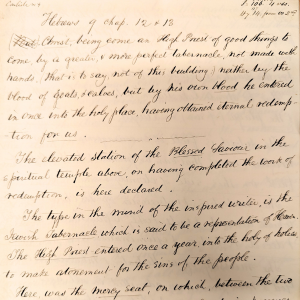 Hebrews 9 chap. 12 v.
Christ, being come an High Priest of good things to
come, by a greater, & more perfect tabernacle, not made with
hands, that is to say, not of this building; neither by the
blood of goats, & calves, but by his own blood he entered
in once into the holy place, having obtained eternal redemp-
tion for us.
The elevated station of the Blessed Saviour in the
spiritual temple above, on having completed the work of
redemption, is here declared.
The type in the mind of the inspired writer, is the
Jewish Tabernacle which is said to be a representation of Heaven.
The High Priest entered once a year, into the holy of holies
to make atonement for the sins of the people.
Here, was the mercy seat, on which, between the two